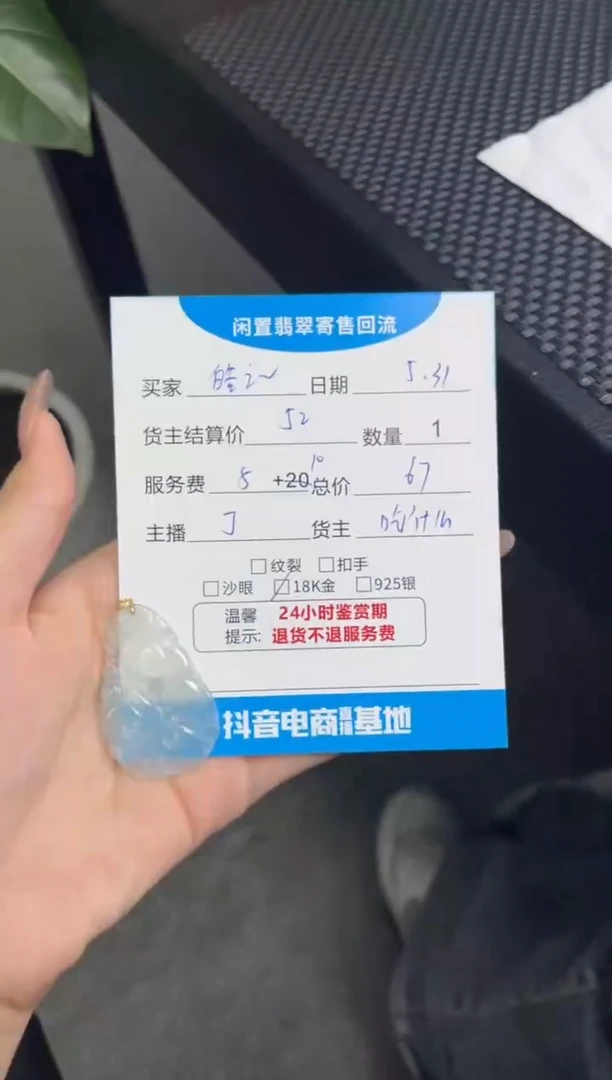 闲置翡翠寄售回流
买家 日期 5.31
货主结算价 52 数量 1
10
服务费 5 +20 总价 67
主播 丁 货主
纹裂 扣手
沙眼 18K金 925银
温馨 24小时鉴赏期
提示: 退货不退服务费
抖音电商 基地